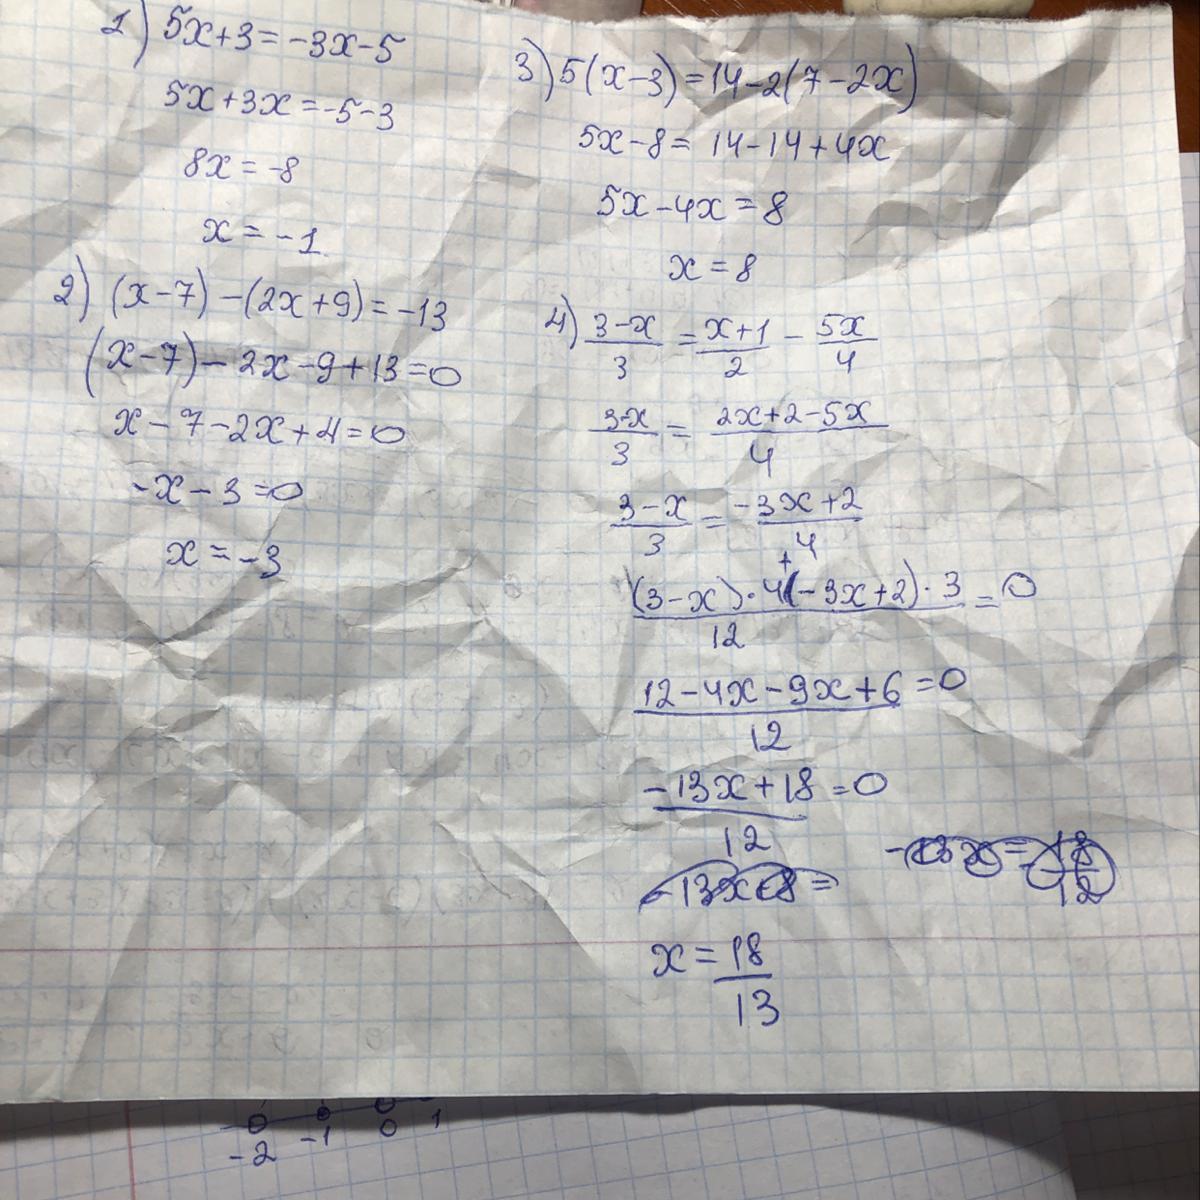 1) 5x+3=-3x-5
5x+3x=-5-3
8x=-8
x=-1
2) (x-7)-(2x+9)=-13
(x-7)-2x-9+13=0
x-7-2x+4=0
-x-3=0
x=-3
3) 5(x-3)=14-2(7-2x)
5x-8=14-14+4x
5x-4x=8
x=8
4) 3-x/3 = x+1/2 - 5x/4
3-x/3 = 2x+2-5x/4
3-x/3 = -3x+2/4
(3-x)·4+(-3x+2)·3/12 = 0
12-4x-9x+6/12 = 0
-13x+18/12 = 0
x = 18/13
-2 -1 0 1